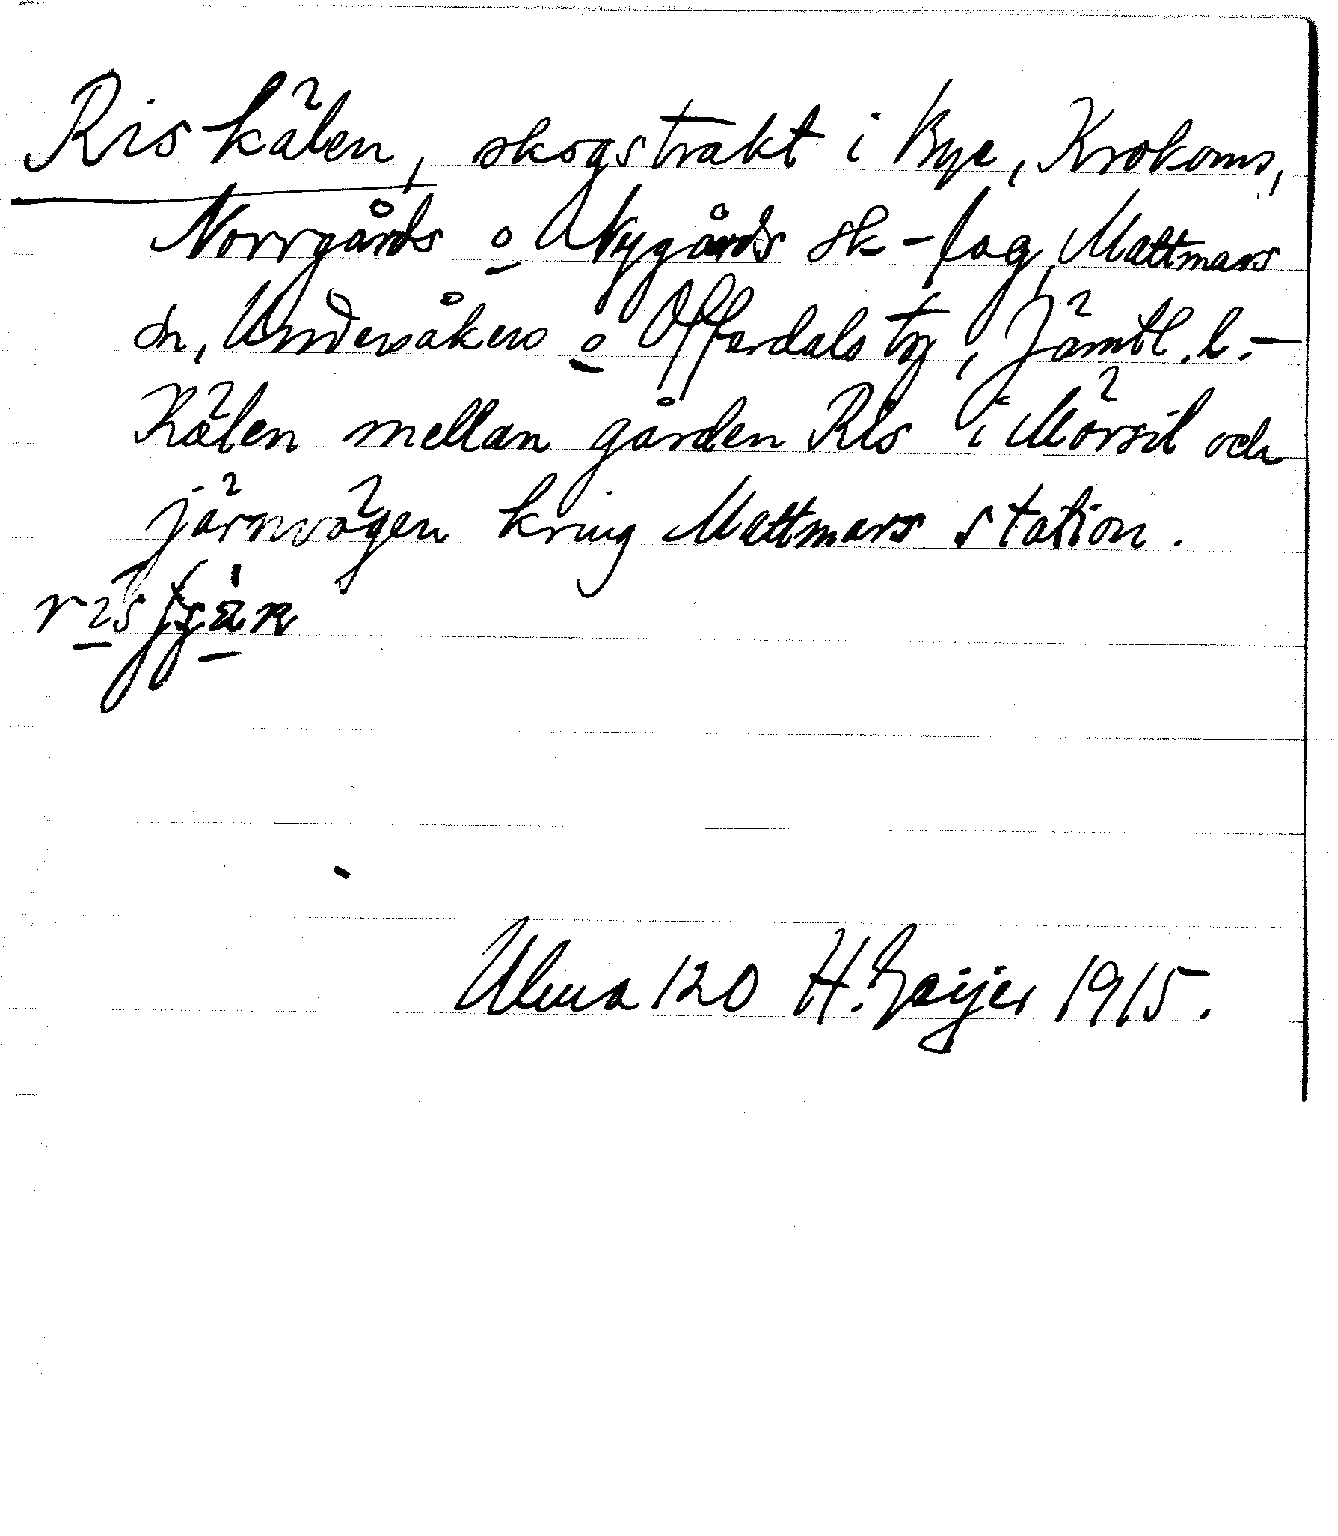 Riskälen, skogstrakt i Bye, Krokoms,
Norrgårds o Nygårds sk-lag, Mattmars
sn, Undersåkers o Offerdals tg, Jämtl. l. -
Kälen mellan gården Ris i Mörsil och
järnvägen kring Mattmars station.
Ulma 120 H. Geijer 1915.